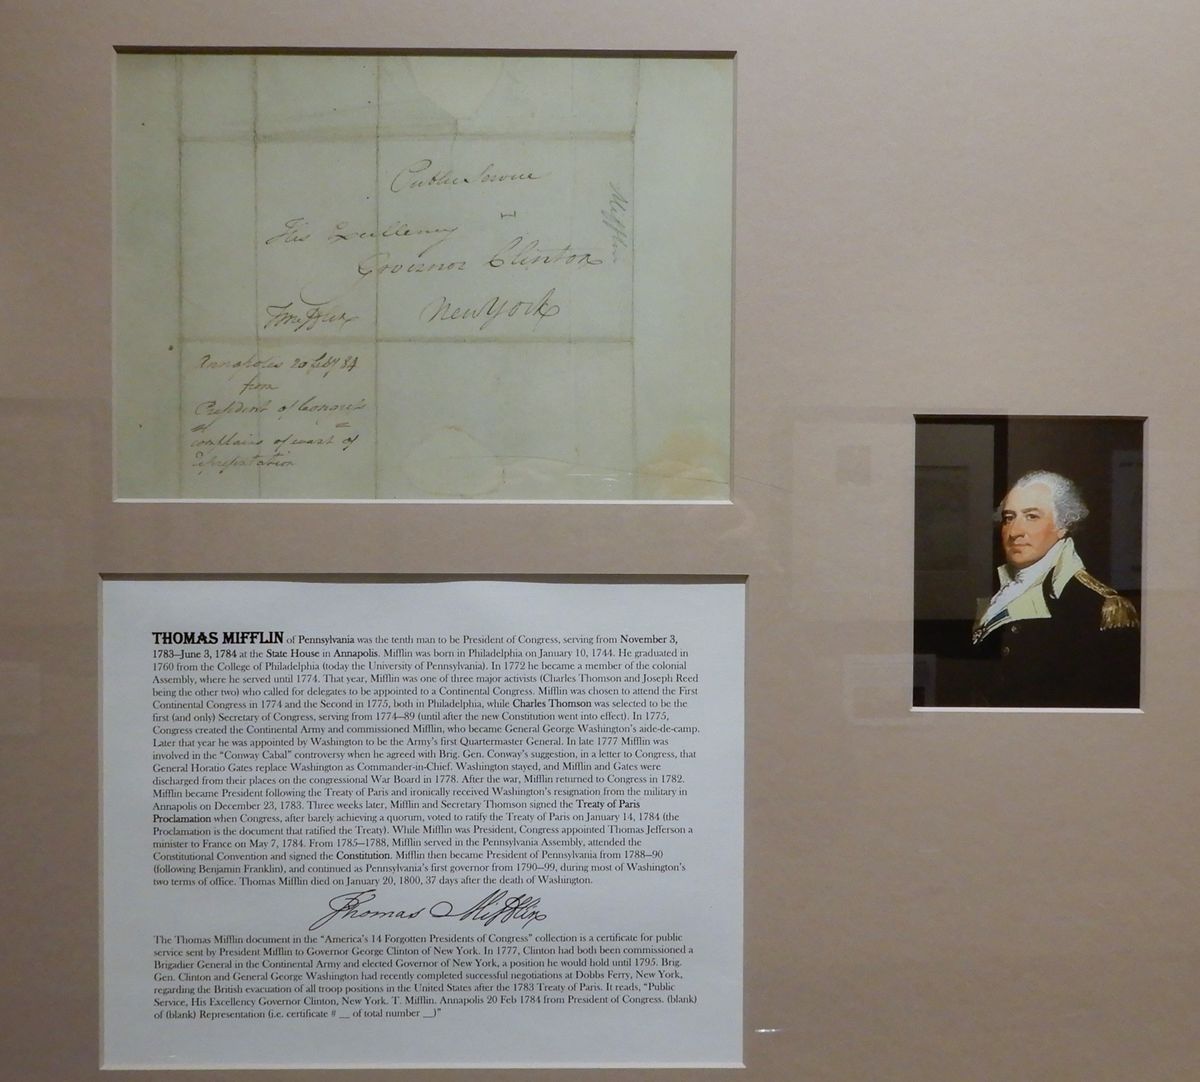 Public Service
His Excellency
Governor Clinton
New York
TMifflin
Mifflin
Annapolis 20 Feby 84
from
President of Congress
complains of want of
representation
THOMAS MIFFLIN of Pennsylvania was the tenth man to be President of Congress, serving from November 3,
1783–June 3, 1784 at the State House in Annapolis. Mifflin was born in Philadelphia on January 10, 1744. He graduated in
1760 from the College of Philadelphia (today the University of Pennsylvania). In 1772 he became a member of the colonial
Assembly, where he served until 1774. That year, Mifflin was one of three major activists (Charles Thomson and Joseph Reed
being the other two) who called for delegates to be appointed to a Continental Congress. Mifflin was chosen to attend the First
Continental Congress in 1774 and the Second in 1775, both in Philadelphia, while Charles Thomson was selected to be the
first (and only) Secretary of Congress, serving from 1774–89 (until after the new Constitution went into effect). In 1775,
Congress created the Continental Army and commissioned Mifflin, who became General George Washington's aide-de-camp.
Later that year he was appointed by Washington to be the Army's first Quartermaster General. In late 1777 Mifflin was
involved in the "Conway Cabal" controversy when he agreed with Brig. Gen. Conway's suggestion, in a letter to Congress, that
General Horatio Gates replace Washington as Commander-in-Chief. Washington stayed, and Mifflin and Gates were
discharged from their places on the congressional War Board in 1778. After the war, Mifflin returned to Congress in 1782.
Mifflin became President following the Treaty of Paris and ironically received Washington's resignation from the military in
Annapolis on December 23, 1783. Three weeks later, Mifflin and Secretary Thomson signed the Treaty of Paris
Proclamation when Congress, after barely achieving a quorum, voted to ratify the Treaty of Paris on January 14, 1784 (the
Proclamation is the document that ratified the Treaty). While Mifflin was President, Congress appointed Thomas Jefferson a
minister to France on May 7, 1784. From 1785–1788, Mifflin served in the Pennsylvania Assembly, attended the
Constitutional Convention and signed the Constitution. Mifflin then became President of Pennsylvania from 1788–90
(following Benjamin Franklin), and continued as Pennsylvania's first governor from 1790–99, during most of Washington's
two terms of office. Thomas Mifflin died on January 20, 1800, 37 days after the death of Washington.
Thomas Mifflin
The Thomas Mifflin document in the "America's 14 Forgotten Presidents of Congress" collection is a certificate for public
service sent by President Mifflin to Governor George Clinton of New York. In 1777, Clinton had both been commissioned a
Brigadier General in the Continental Army and elected Governor of New York, a position he would hold until 1795. Brig.
Gen. Clinton and General George Washington had recently completed successful negotiations at Dobbs Ferry, New York,
regarding the British evacuation of all troop positions in the United States after the 1783 Treaty of Paris. It reads, "Public
Service, His Excellency Governor Clinton, New York. T. Mifflin. Annapolis 20 Feb 1784 from President of Congress. (blank)
of (blank) Representation (i.e. certificate # __ of total number __)"